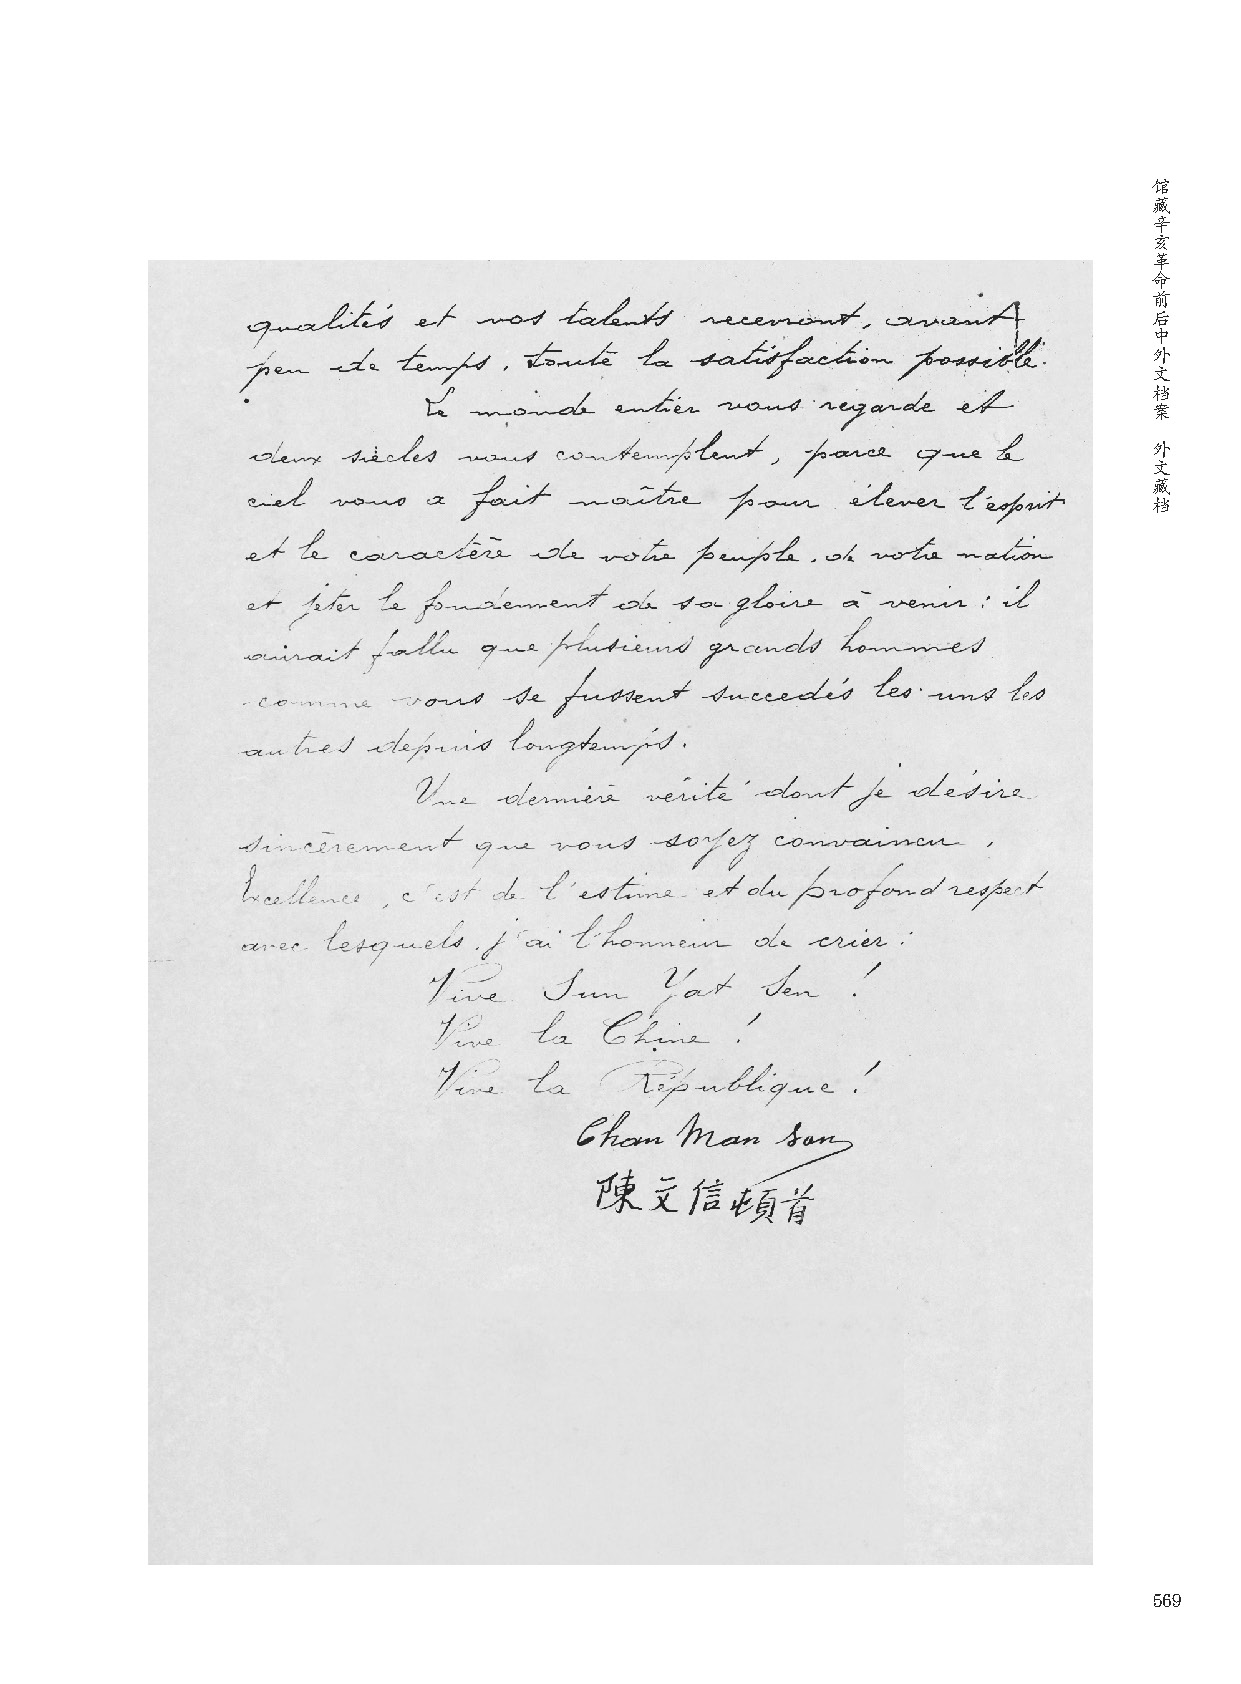 qualités et vos talents recevront, avant
peu de temps, toute la satisfaction possible.
Le monde entier vous regarde et
deux siècles vous contemplent, parce que le
ciel vous a fait naître pour élever l'esprit
et le caractère de votre peuple, de votre nation
et jeter le fondement de sa gloire à venir: il
aurait fallu que plusieurs grands hommes
comme vous se fussent succedés les uns les
autres depuis longtemps.
Une dernière vérité dont je désire
sincèrement que vous soyez convaincu,
Excellence, c'est de l'estime et du profond respect
avec lesquels, j'ai l'honneur de crier:
Vive Sun Yat Sen!
Vive la Chine!
Vive la République!
Chan Man Son
陳文信頓首
馆藏辛亥革命前后中外文档案 外文藏档
569